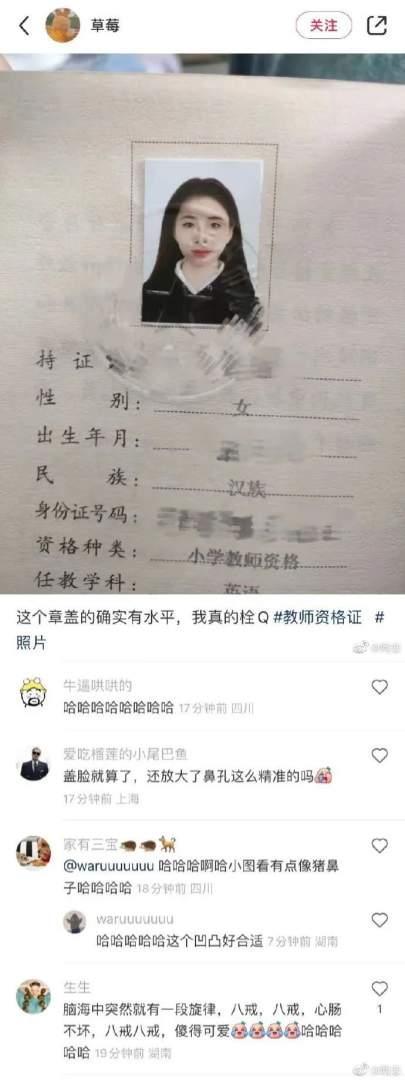 草莓
关注
持 证
性 别：女
出生年月：
民 族：汉族
身份证号码：
资格种类：小学教师资格
任教学科：英语
这个章盖的确实有水平，我真的栓Q #教师资格证 #
照片
牛逼哄哄的
哈哈哈哈哈哈哈哈 17分钟前 四川
爱吃榴莲的小尾巴鱼
盖脸就算了，还放大了鼻孔这么精准的吗
17分钟前 上海
家有三宝
@waruuuuuuu 哈哈哈啊哈小图看有点像猪鼻
子哈哈哈哈 18分钟前 四川
waruuuuuuu
哈哈哈哈哈这个凹凸好合适 7分钟前 湖南
生生
脑海中突然就有一段旋律，八戒，八戒，心肠
不坏，八戒八戒，傻得可爱哈哈哈
哈哈 19分钟前 湖南
1